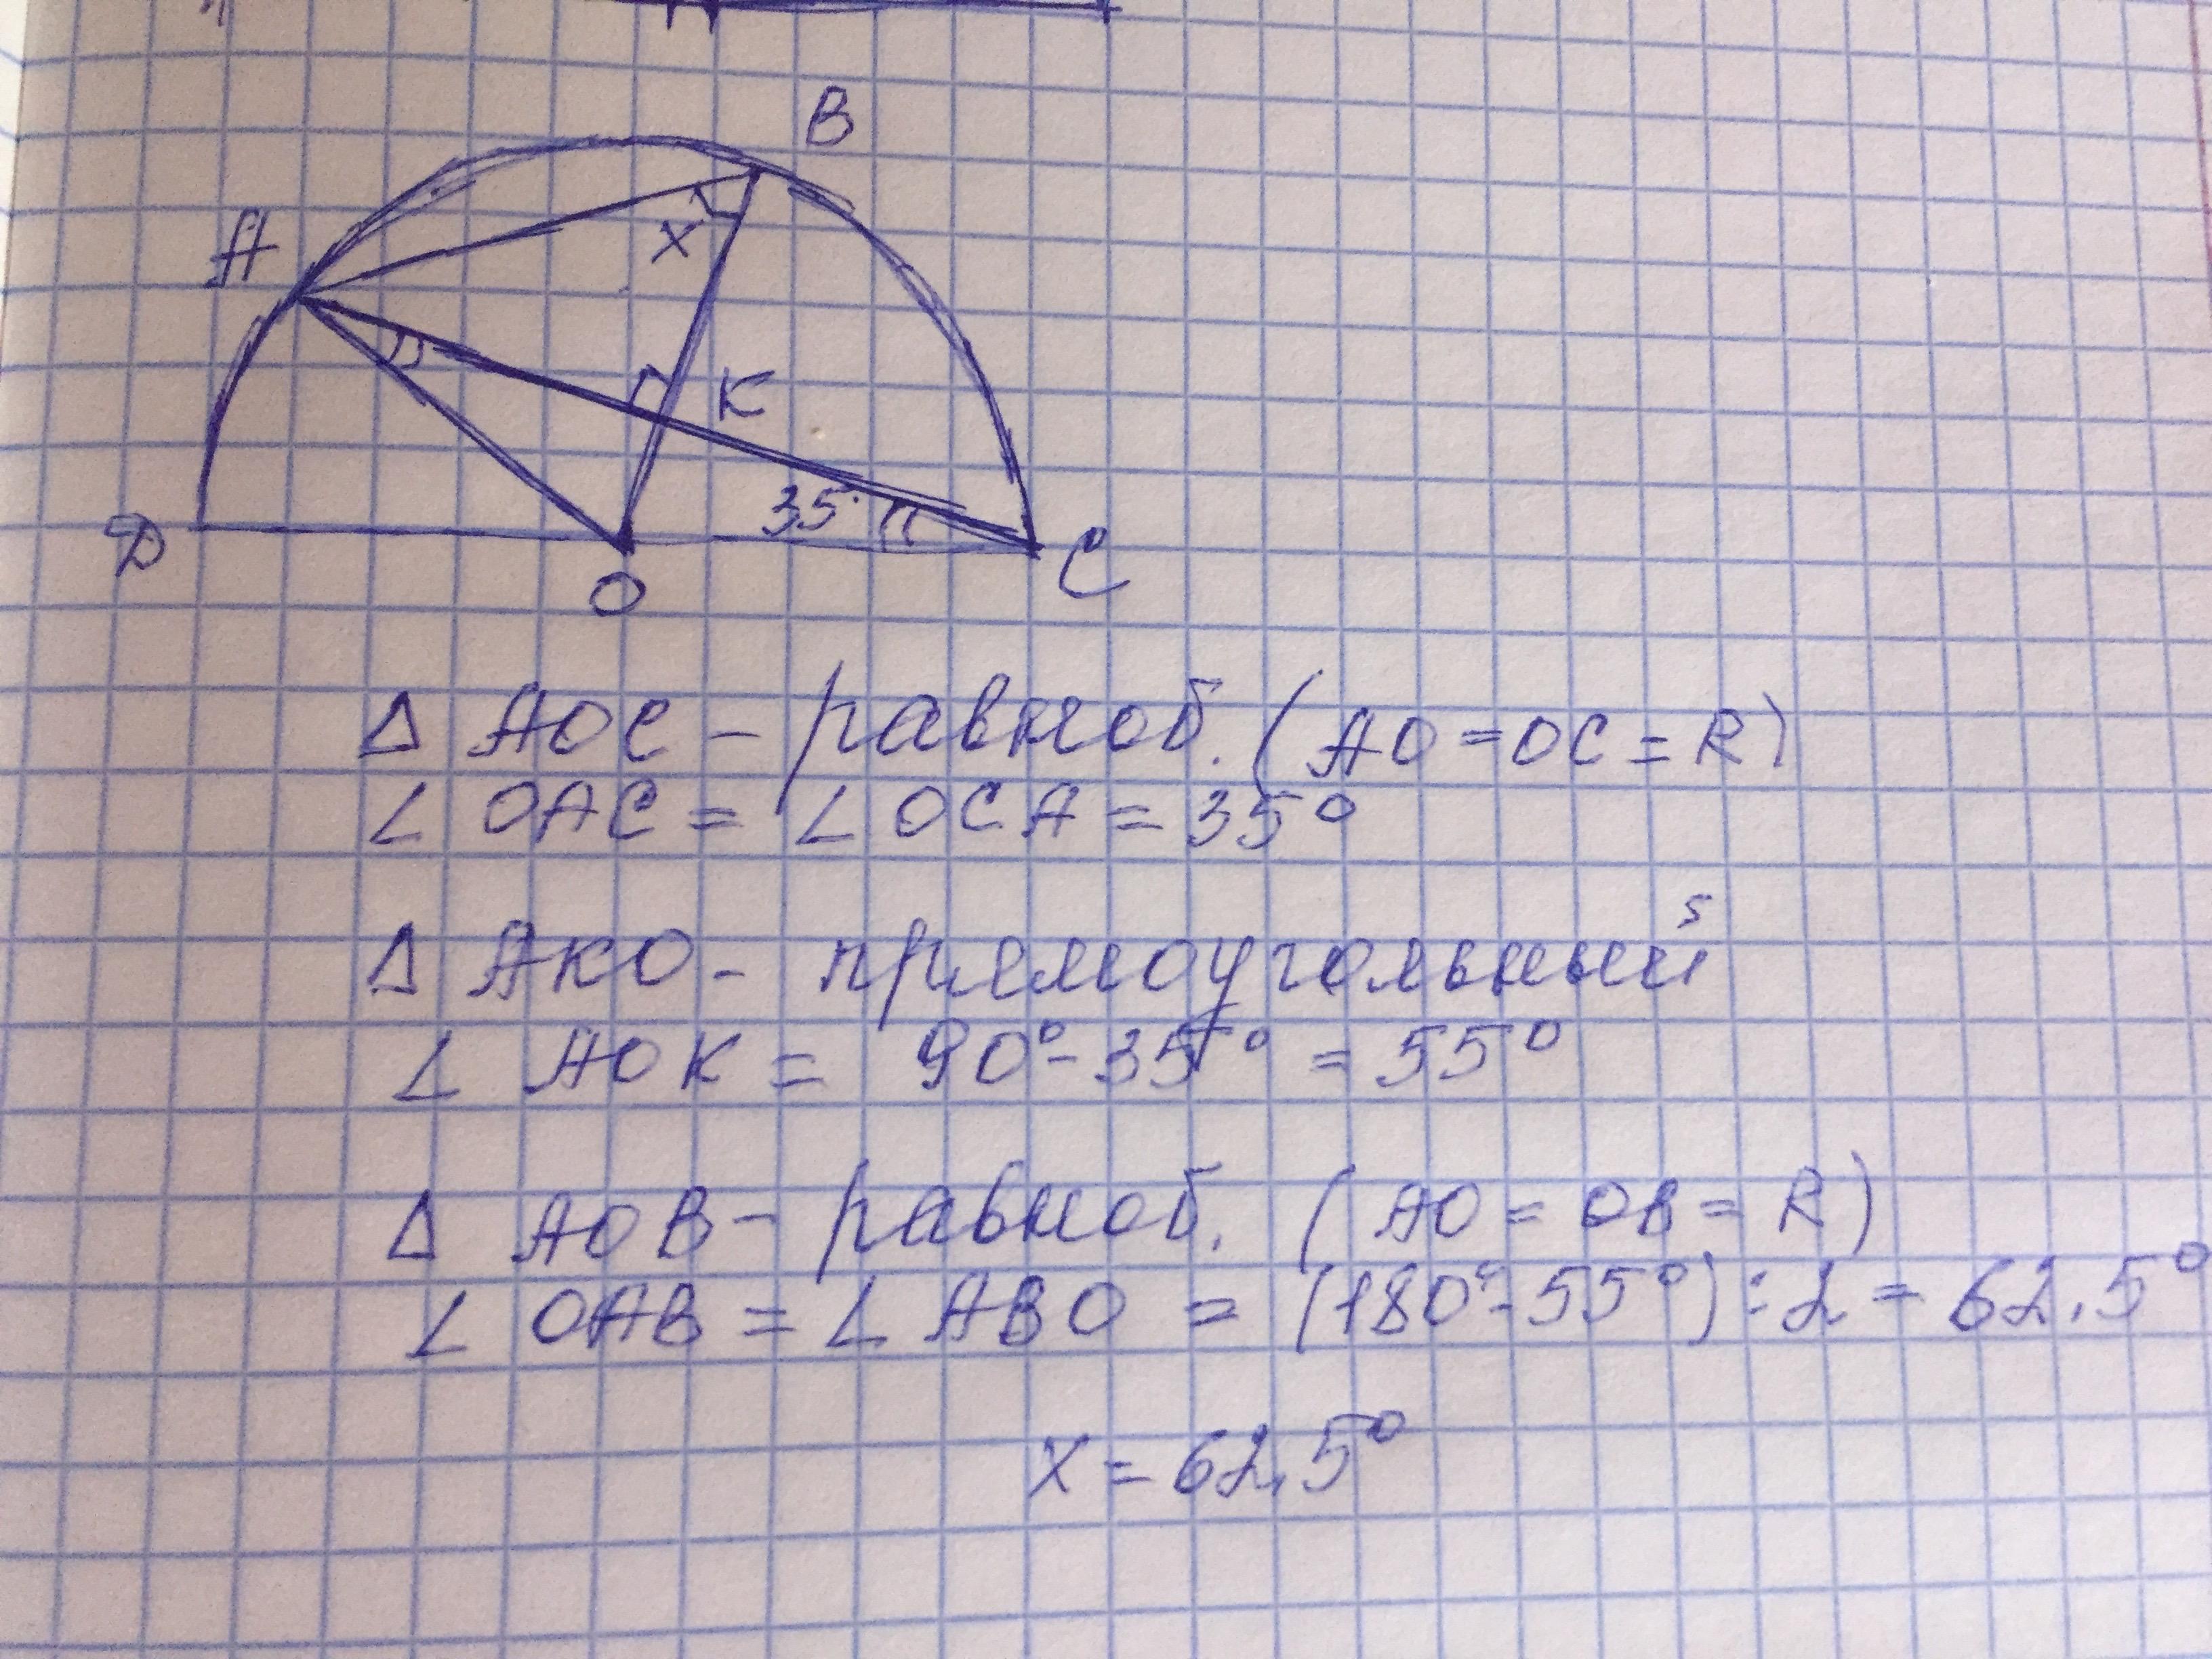 B
A
x
K
35°
D
O
C
Δ AOC - равноб. (AO = OC = R)
∠ OAC = ∠ OCA = 35°
Δ AKO - прямоугольный
∠ AOK = 90° - 35° = 55°
Δ AOB - равноб. (AO = OB = R)
∠ OAB = ∠ ABO = (180° - 55°) : 2 = 62,5°
x = 62,5°